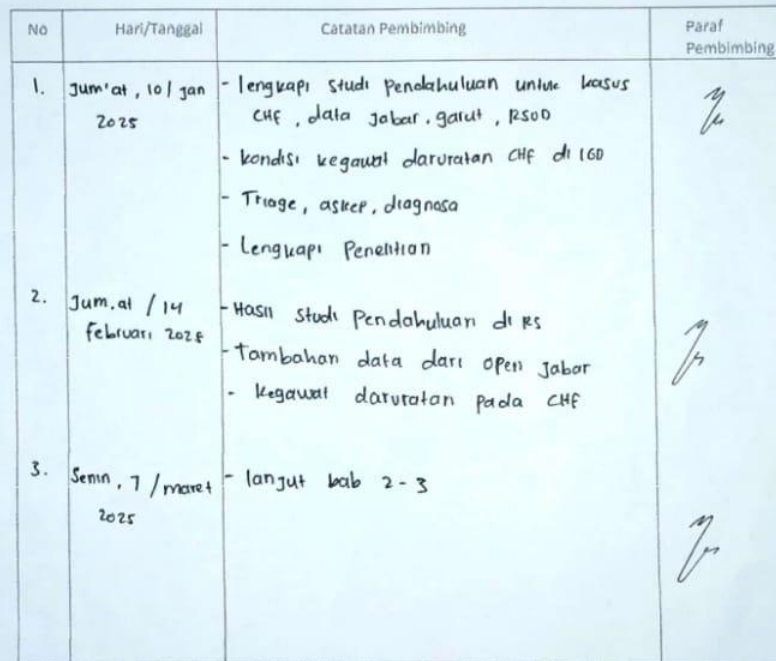 No Hari/Tanggal Catatan Pembimbing Paraf Pembimbing
1. Jum'at, 10/ Jan 2025
- lengkapi studi Pendahuluan untuk kasus
CHF, data Jabar. garut, RSUD
- kondisi kegawat daruratan CHF di IGD
- Triage, askep, diagnosa
- Lengkapi Penelitian
2. Jum.at / 14
februari 2025
- Hasil studi Pendahuluan di RS
- Tambahan data dari open Jabar
- kegawat daruratan pada CHF
3. Senin, 7 /maret
2025
- lanjut bab 2-3